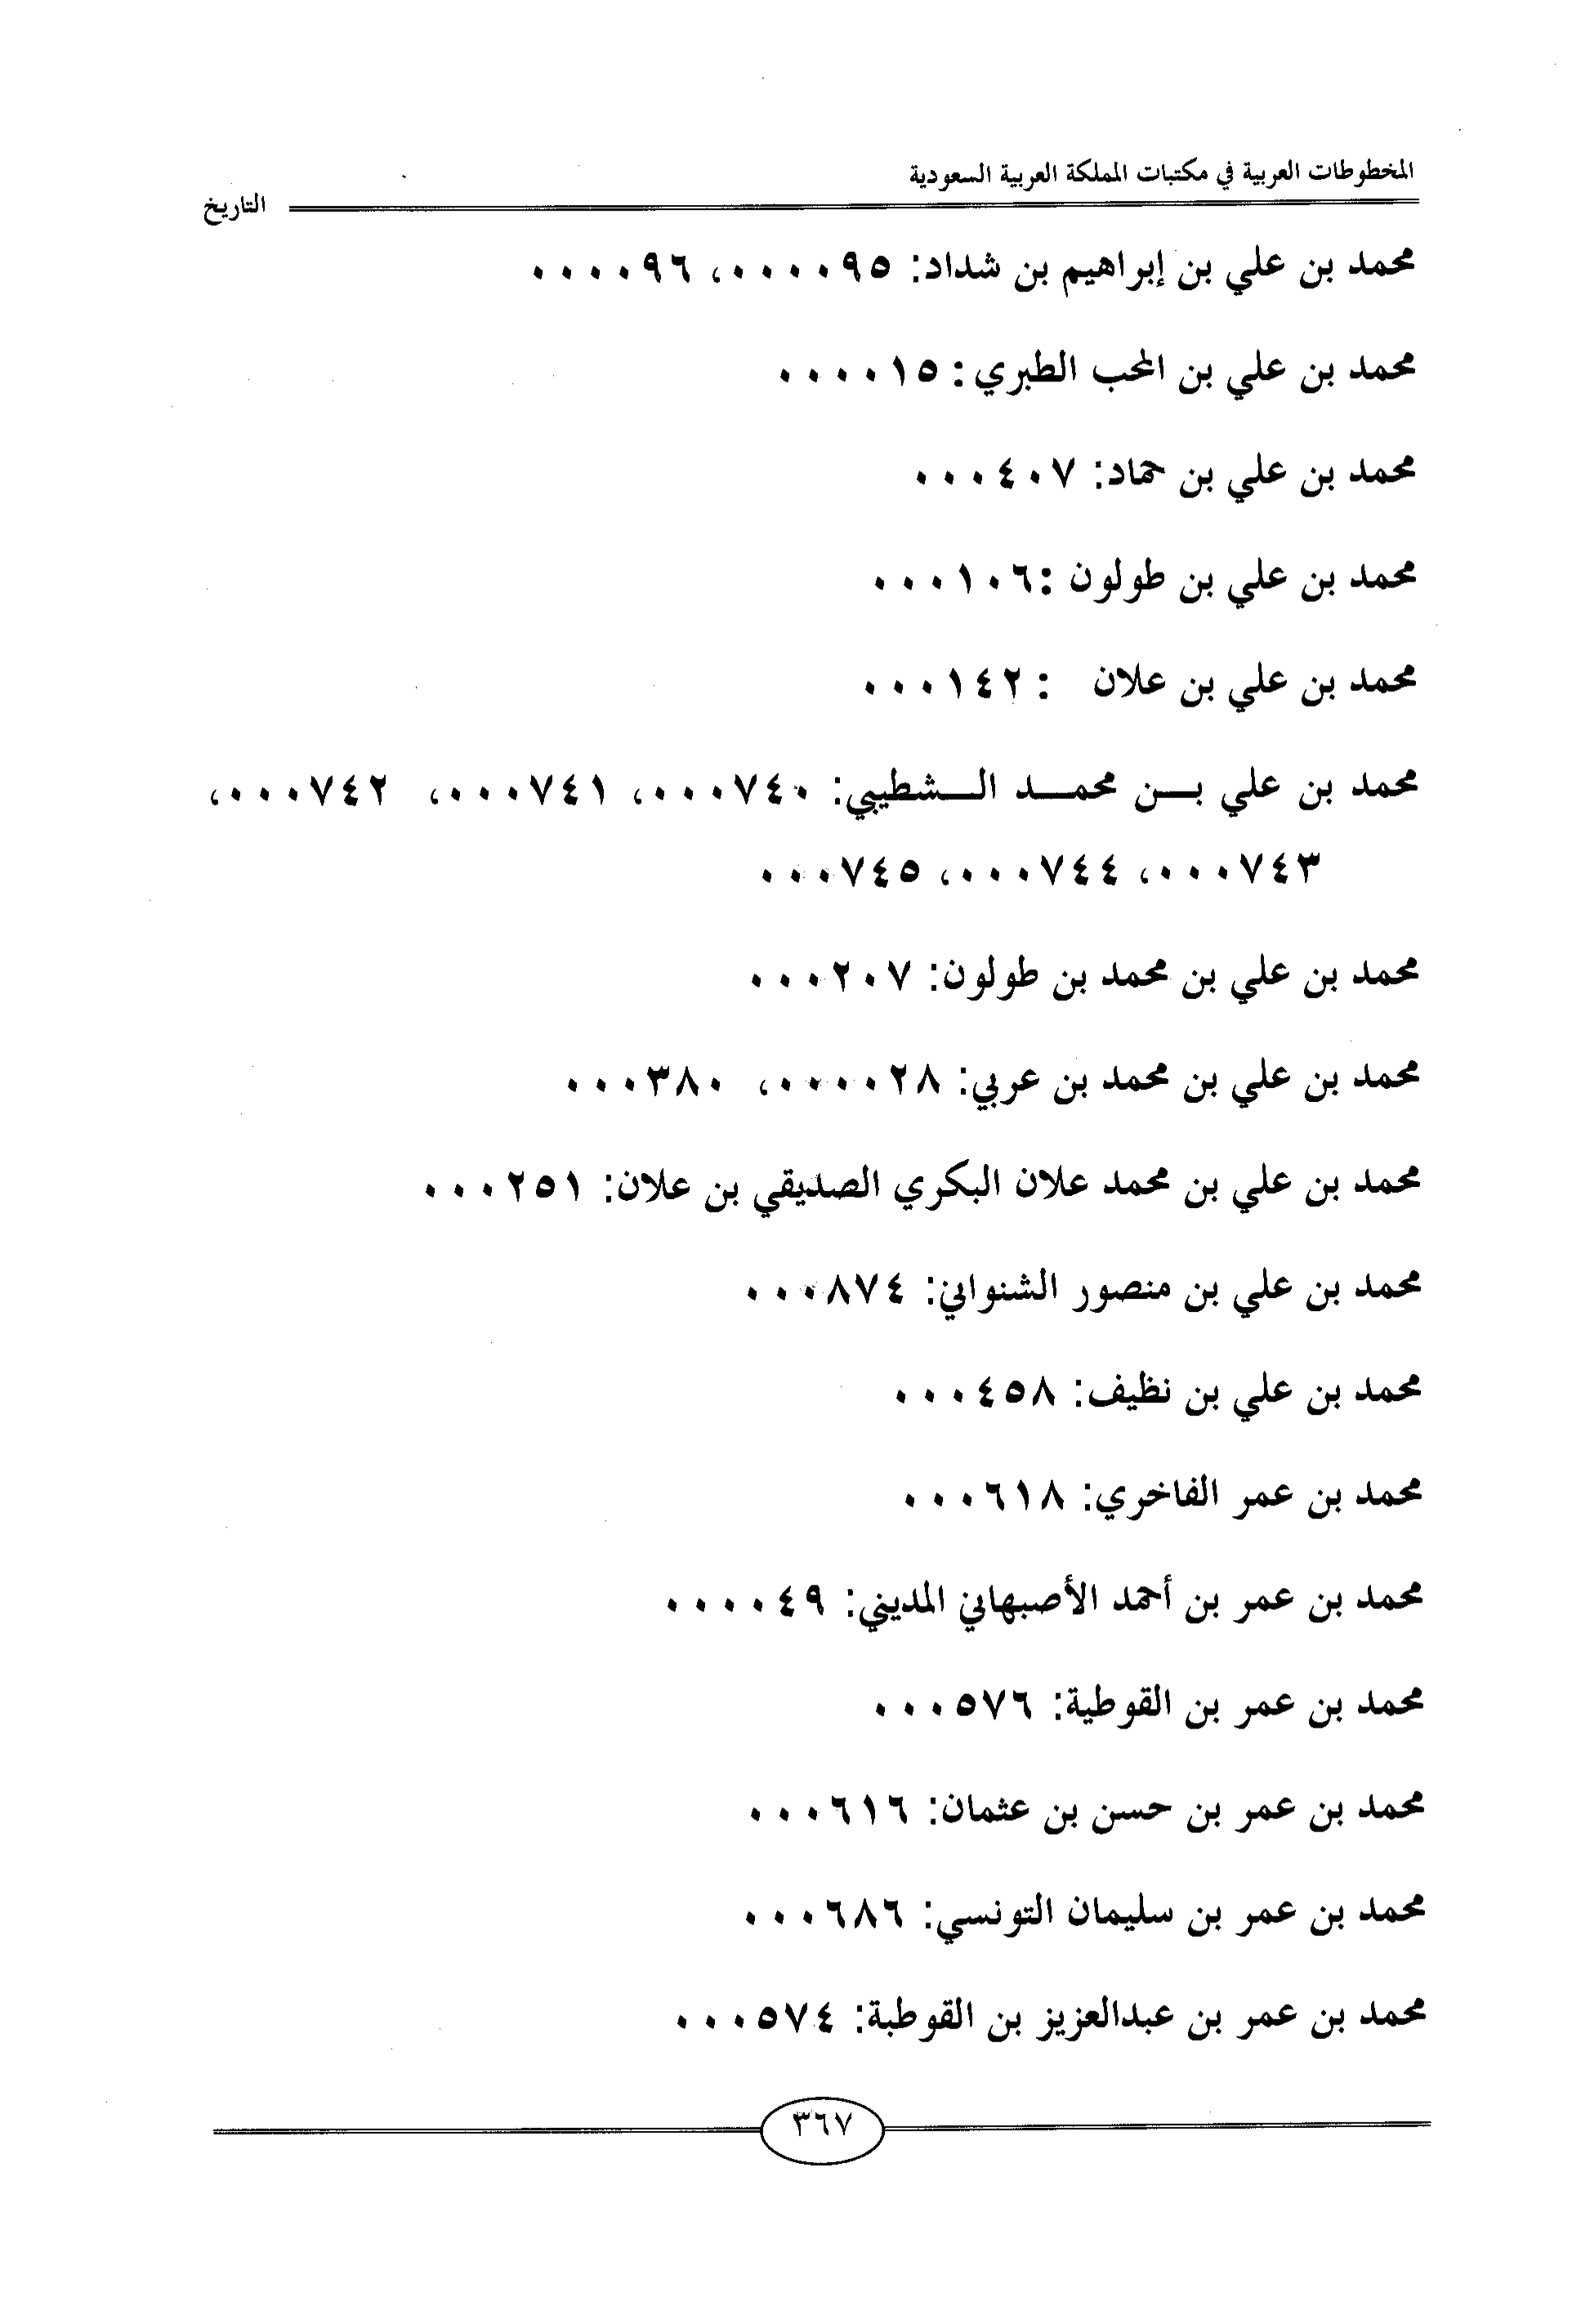 المخطوطات العربية في مكتبات المملكة العربية السعودية
التاريخ
محمد بن علي بن إبراهيم بن شداد: ٠٠٠٠٩٥، ٠٠٠٠٩٦
محمد بن علي بن المحب الطبري: ٠٠٠٠١٥
محمد بن علي بن حماد: ٠٠٠٤٠٧
محمد بن علي بن طولون :٠٠٠١٠٦
محمد بن علي بن علان : ٠٠٠١٤٢
محمد بن علي بـــن محمـــد الـــشطيبي: ٠٠٠٧٤٠، ٠٠٠٧٤١، ٠٠٠٧٤٢،
٠٠٠٧٤٣، ٠٠٠٧٤٤، ٠٠٠٧٤٥
محمد بن علي بن محمد بن طولون: ٠٠٠٢٠٧
محمد بن علي بن محمد بن عربي: ٠٠٠٠٢٨، ٠٠٠٣٨٠
محمد بن علي بن محمد علان البكري الصديقي بن علان: ٠٠٠٢٥١
محمد بن علي بن منصور الشنواني: ٠٠٠٨٧٤
محمد بن علي بن نظيف: ٠٠٠٤٥٨
محمد بن عمر الفاخري: ٠٠٠٦١٨
محمد بن عمر بن أحمد الأصبهاني المديني: ٠٠٠٠٤٩
محمد بن عمر بن القوطية: ٠٠٠٥٧٦
محمد بن عمر بن حسن بن عثمان: ٠٠٠٦١٦
محمد بن عمر بن سليمان التونسي: ٠٠٠٦٨٦
محمد بن عمر بن عبدالعزيز بن القوطبة: ٠٠٠٥٧٤
٣٦٧